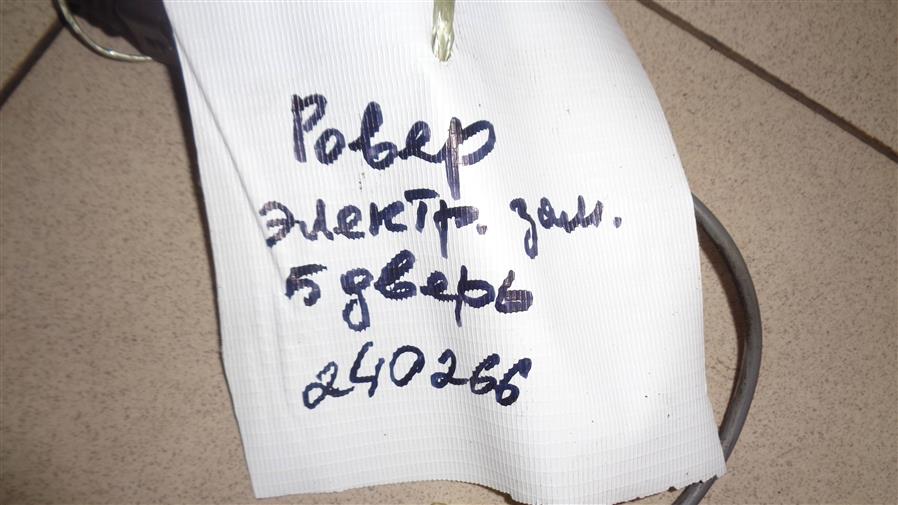 Ровер
электр. зам.
5 дверь
240266